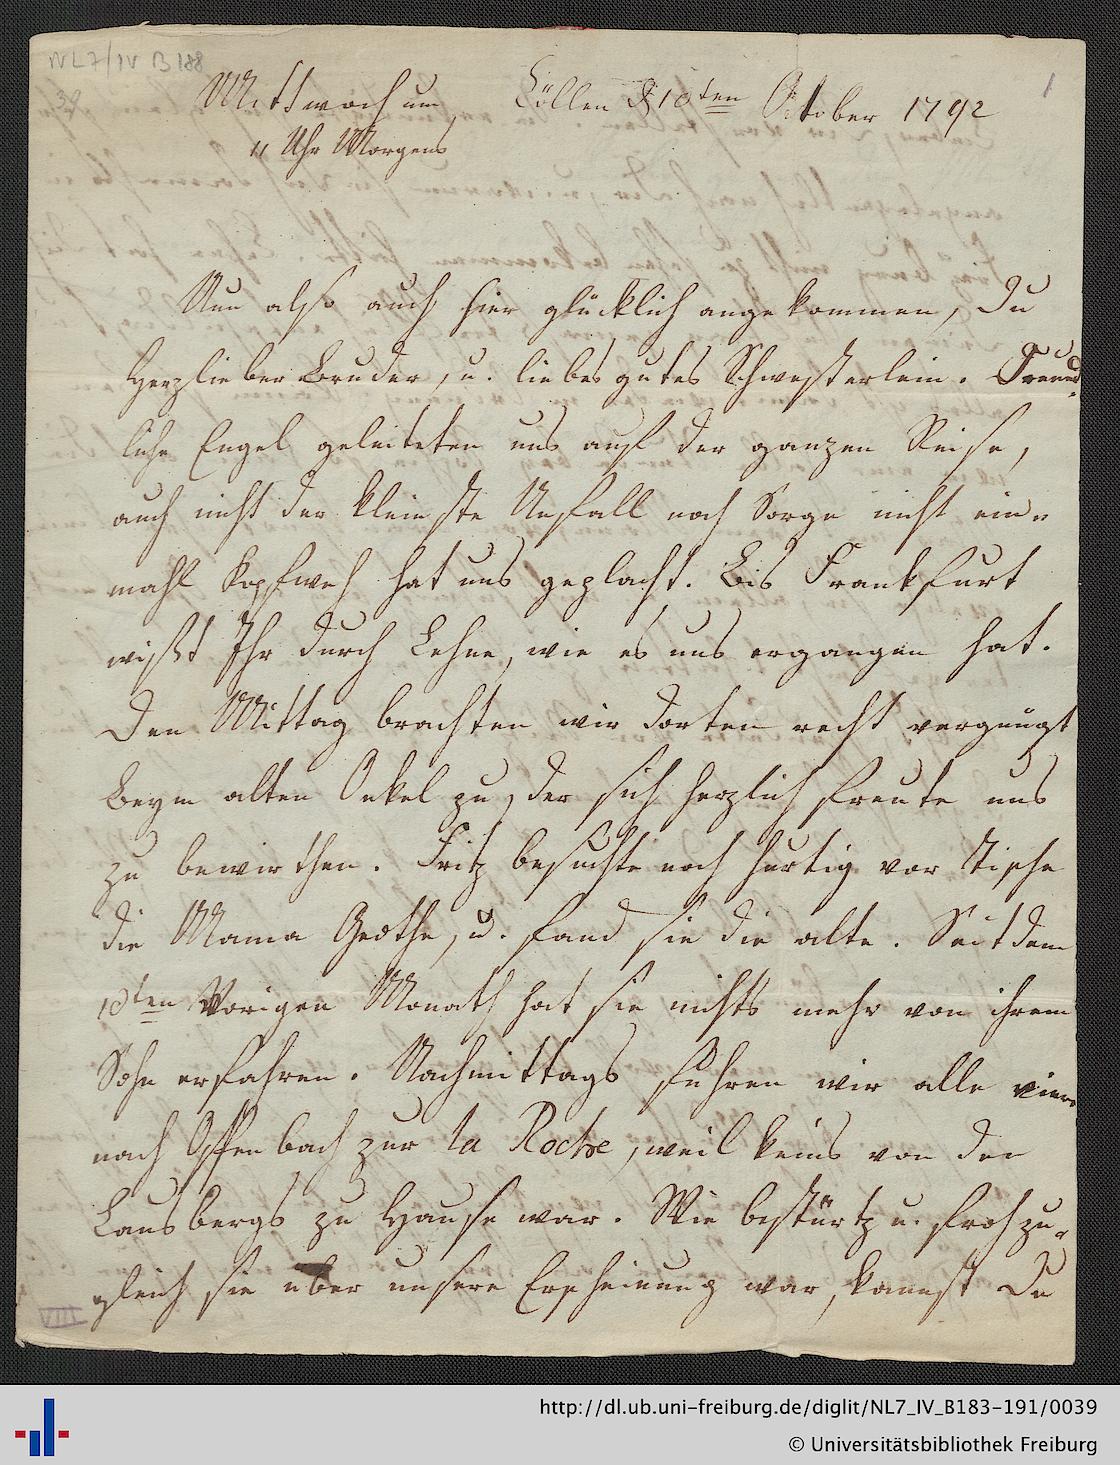 NL7/IV B 188
39
1
Mittwoch um Cöllen d 10ten October 1792
11 Uhr Morgens
Nun also auch hier glücklich angekommen, Du
Herzlieber Bruder, u. liebes gutes Schwesterlein. Freund
liche Engel geleiteten uns auf der ganzen Reise,
auch nicht der kleinste Unfall noch Sorge nicht ein-
mahl Kopfweh hat uns geplacht. Bis Frankfurt
wißt Ihr durch Lehne, wie es uns ergangen hat.
Den Mittag brachten wir dorten recht vergnügt
beym alten Onkel zu, der sich herzlich freute uns
zu bewirthen. Fritz besuchte noch hurtig vor Tische
die Mama Geothe, u. fand sie die alte. Seit dem
10ten Vorigen Monath hat sie nichts mehr von ihrem
Sohn erfahren. Nachmittags fuhren wir alle vier
nach Offenbach zur la Roche, weil keins von den
Lausbergs zu Hause war. Wie bestürtz u. froh zu-
gleich sie über unsere Erscheinung war, kannst Du
VIII
http://dl.ub.uni-freiburg.de/diglit/NL7_IV_B183-191/0039
© Universitätsbibliothek Freiburg